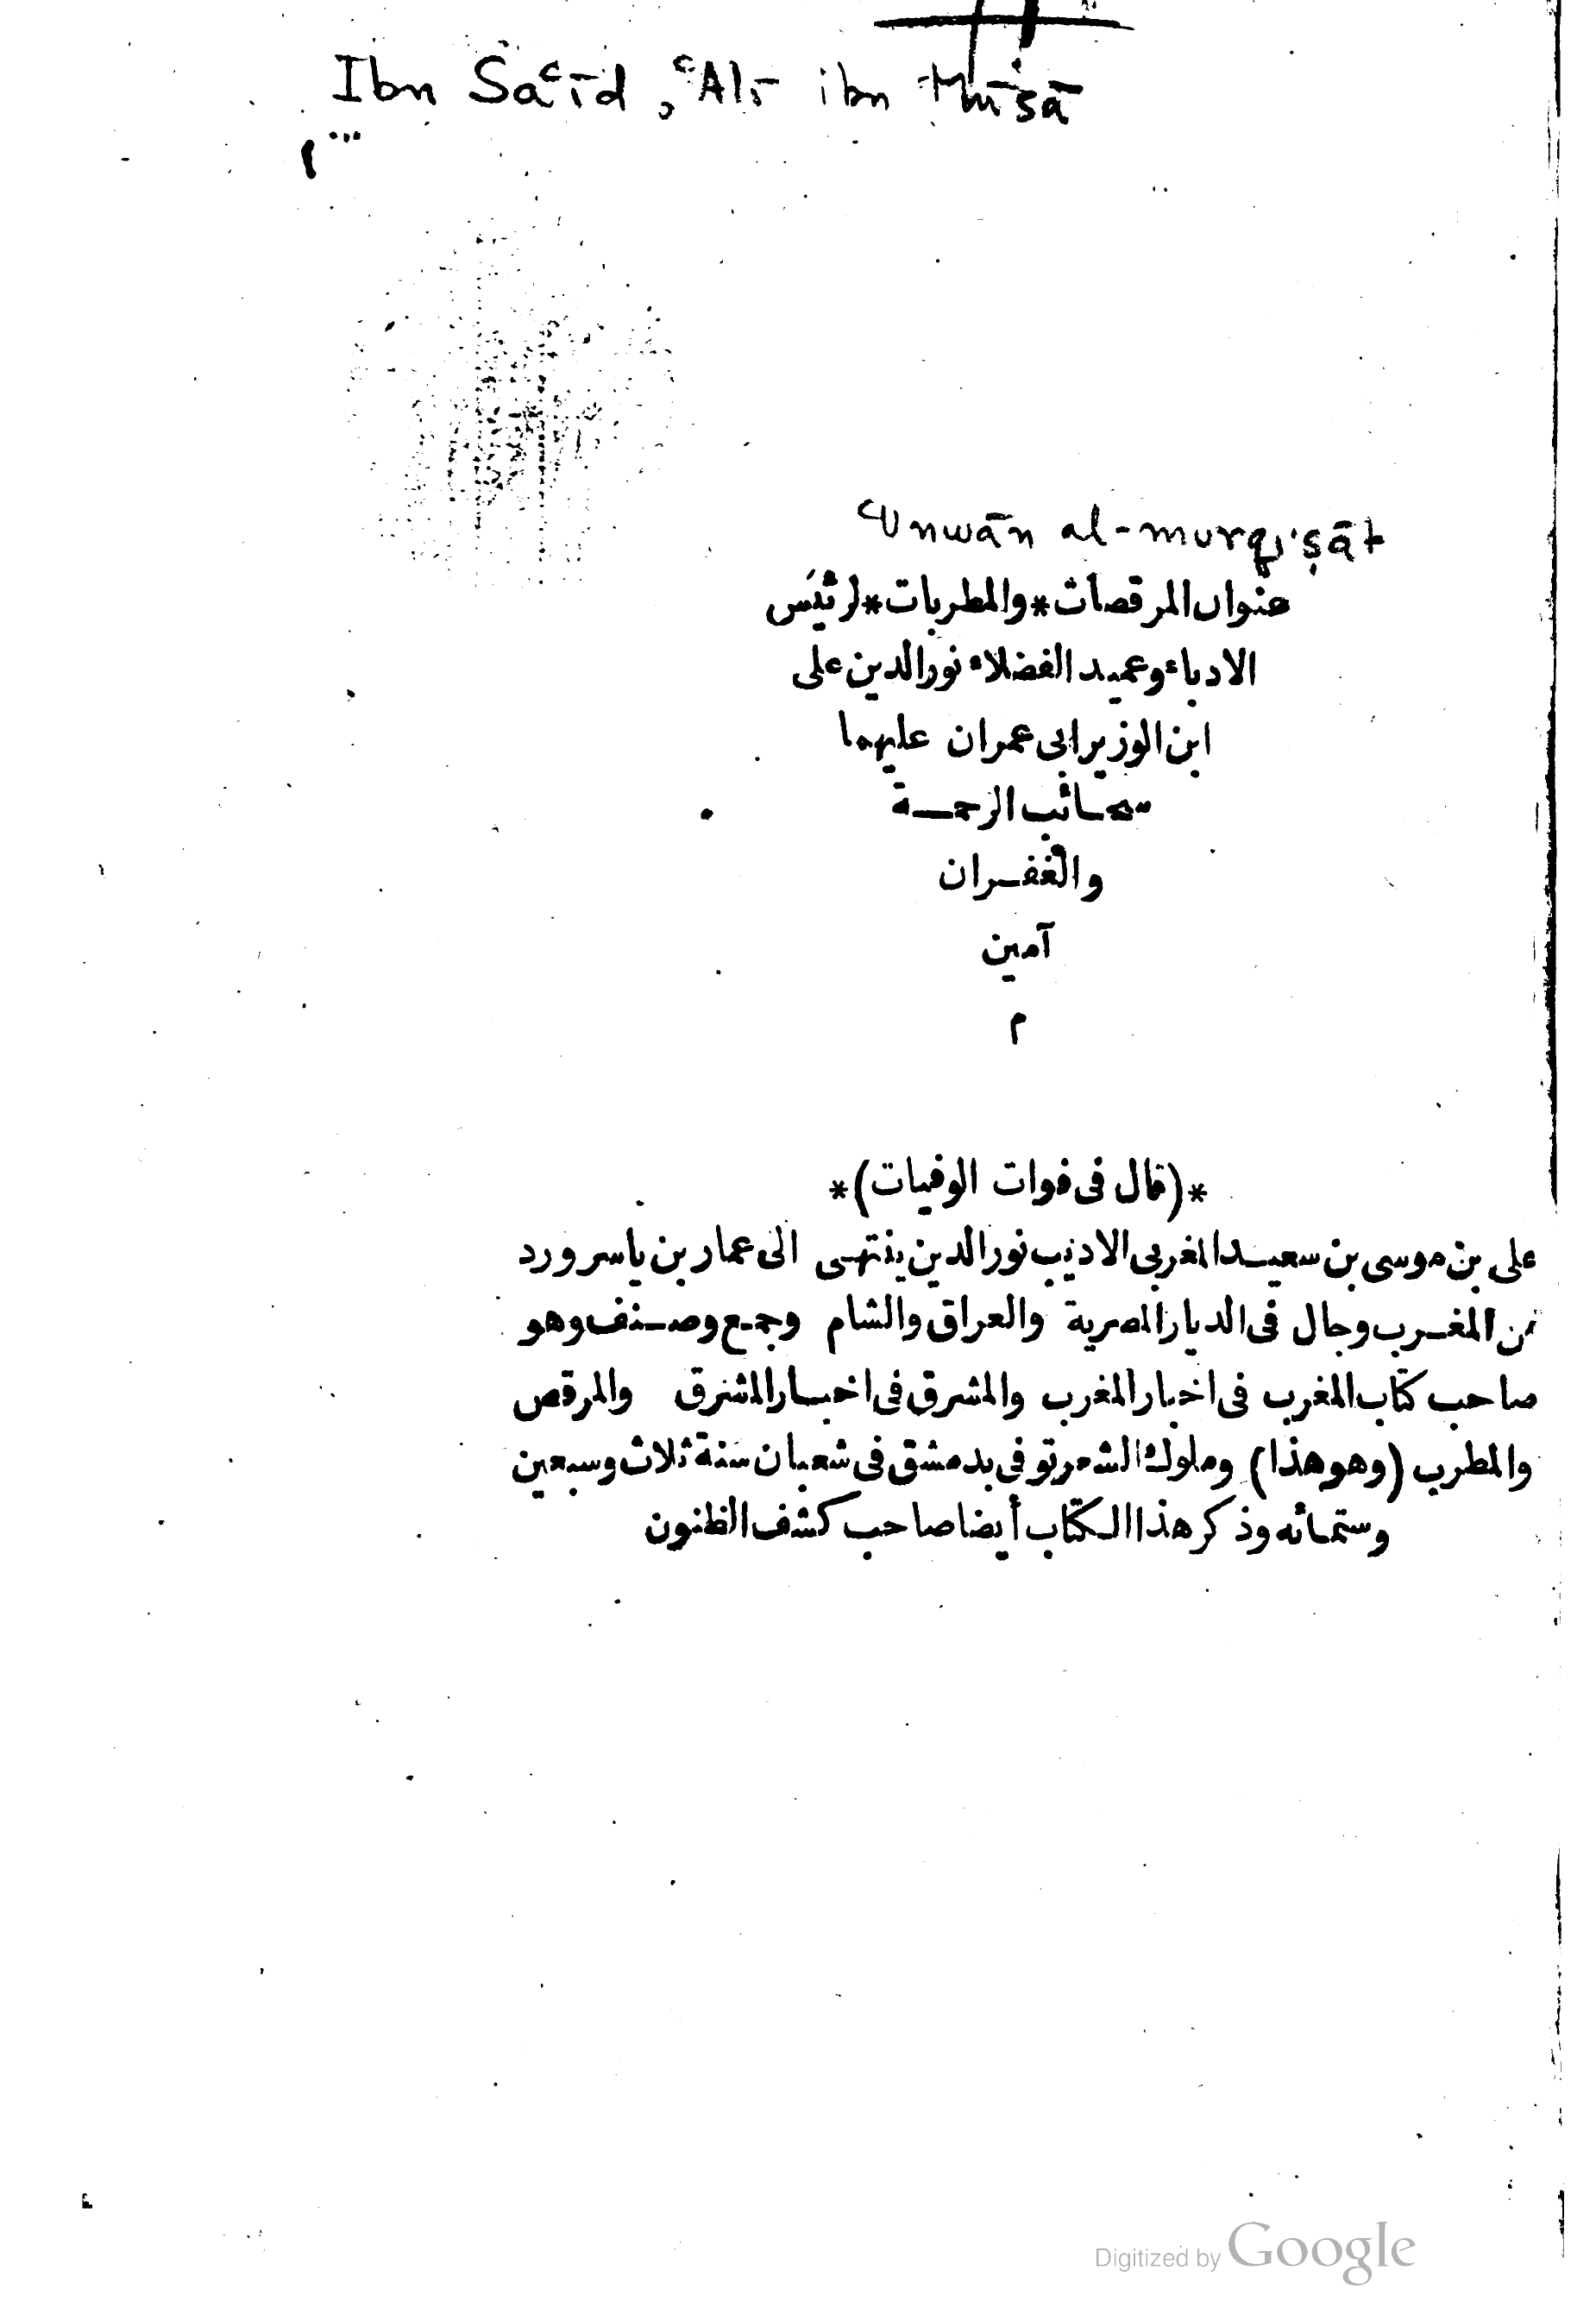 Ibn Saʿīd, ʿAlī ibn Mūsā
ʿUnwān al-murqiṣāt
عنوان المرقصات * والمطربات * لرئيس
الادباء وعميد الفضلاء نور الدين على
ابن الوزير ابى عمران عليهما
سحائب الرحمة
والغفران
آمين
م
*(قال فى فوات الوفيات)*
على بن موسى بن سعيد المغربى الاديب نور الدين ينتهى الى عمار بن ياسر ورد
من المغرب وجال فى الديار المصرية والعراق والشام وجمع وصنف وهو
صاحب كتاب المغرب فى اخبار المغرب والمشرق فى اخبار المشرق والمرقص
والمطرب (وهو هذا) وملوك الشعر توفى بدمشق فى شعبان سنة ثلاث وسبعين
وستمائه وذكر هذا الكتاب أيضا صاحب كشف الظنون
Digitized by Google